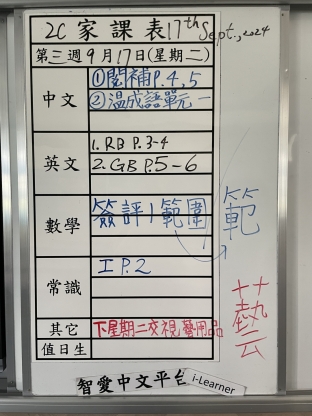 2C 家課表 17th Sept., 2024
第三週 9月17日(星期二)
中文
①閱補P.4,5
②温成語單元一
英文
1. RB P.3-4
2. GB P.5-6
數學
簽評1範圍
範
常識
I P.2
其它
下星期二交視藝用品
藝
值日生
智愛中文平台
i-Learner